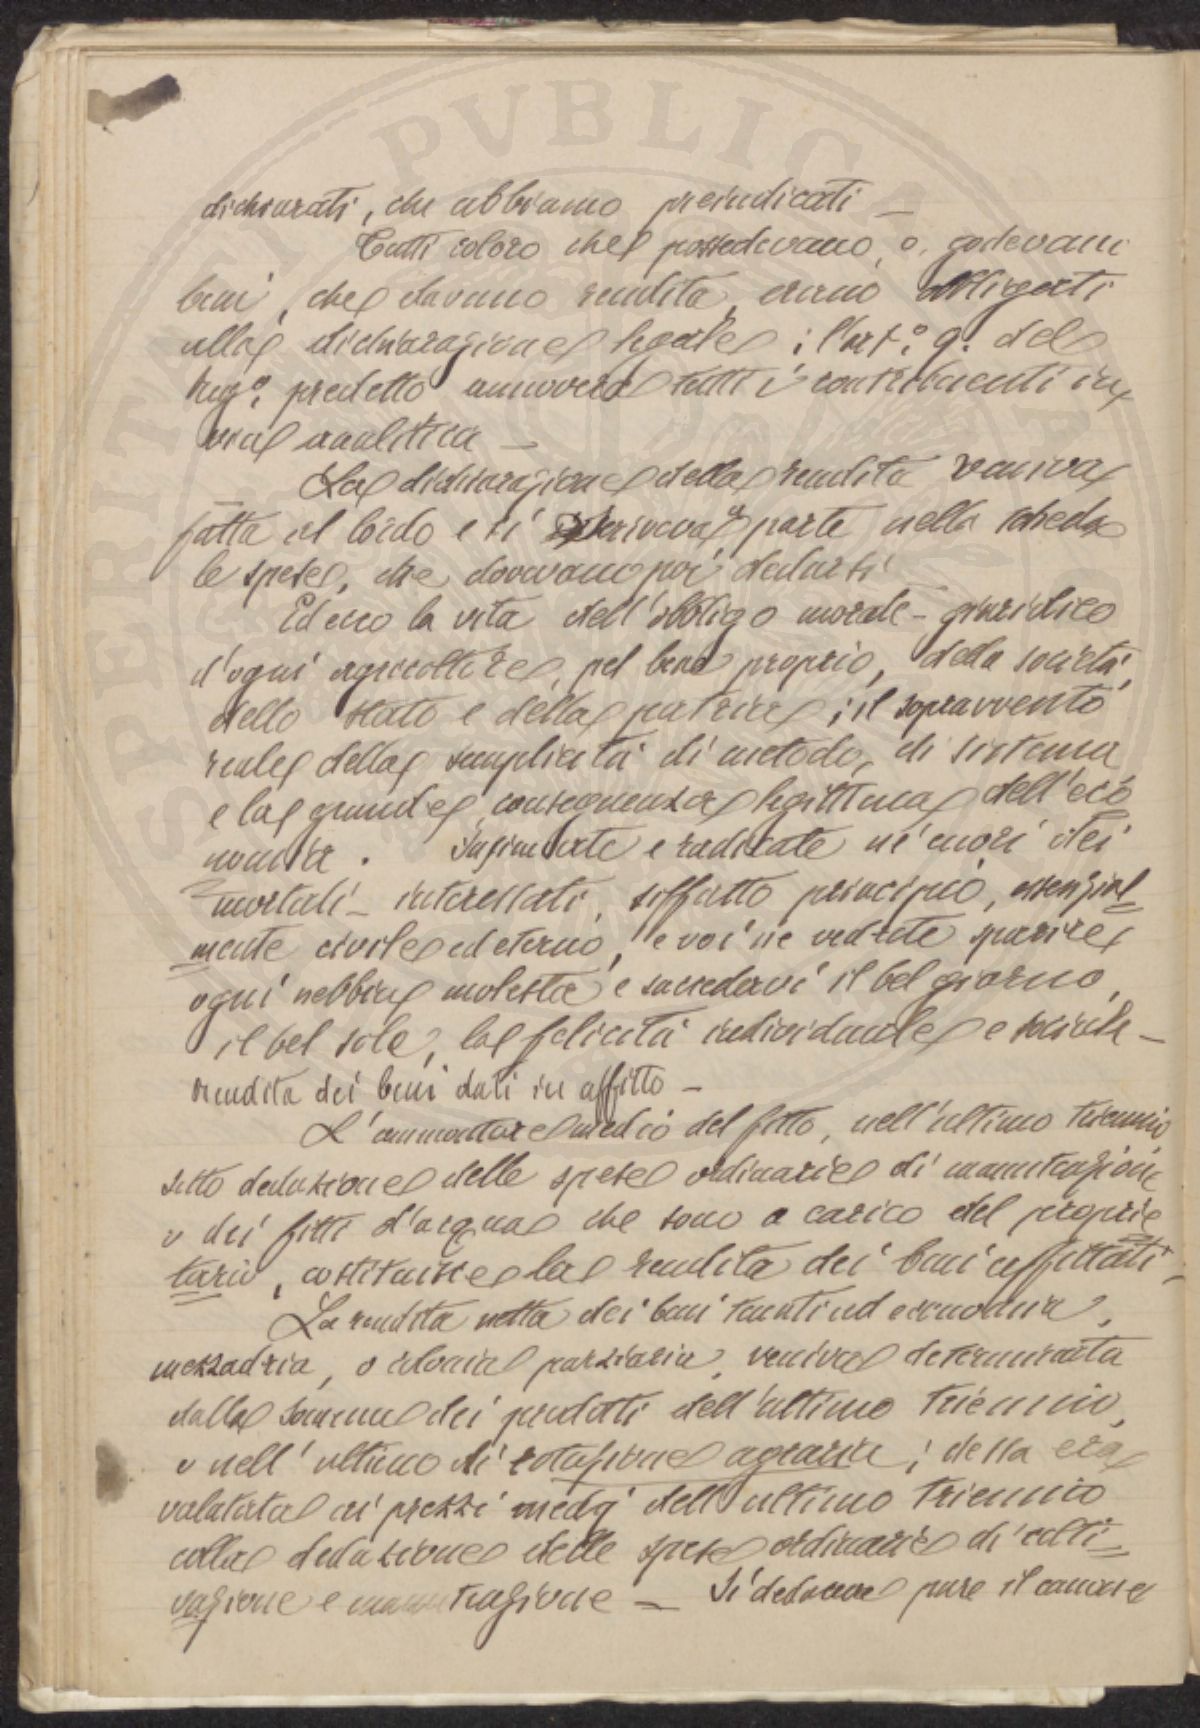 dichiarati, che abbiamo preindicati —
Tutti coloro che possedevano, o, godevano
beni, che davano rendita, erano obbligati
alla dichiarazione legale; l'art.º 9. del
Reg.º predetto annovera tutti i contribuenti in
via analitica —
La dichiarazione della rendita veniva
fatta al lordo e si scriveva a parte nella scheda
le spese, che dovevano poi dedursi
Ed ecco la vita dell'obbligo morale - giuridico
d'ogni agricoltore, pel bene proprio, della società,
dello stato e della patria; il sopravvento
reale della semplicità di metodo, di sistema
e la grande conseguenza legittima dell'eco
nomia. e radicate ne' cuori dei
mortali - interessati, siffatto principio, essenzial=
mente civile ed eterno, e voi ne vedrete sparire
ogni nebbia molesta e succedervi il bel giorno,
il bel sole, la felicità individuale e sociale —
rendita dei beni dati in affitto —
L'ammontare medio del fitto, nell'ultimo triennio,
sotto deduzione delle spese ordinarie di manutenzione
o dei fitti d'acqua che sono a carico del proprie
tario, costituisce la rendita dei beni affittati,
La rendita netta dei beni tenuti ad economia,
mezzadria, o colonia parziaria, veniva determinata
dalla somma dei prodotti dell'ultimo triennio,
o nell'ultimo di rotazione agraria; dessa era
valutata ai prezzi medj dell'ultimo triennio
colla deduzione delle spese ordinarie di colti=
vazione e manutenzione — Si deduceva pure il canone